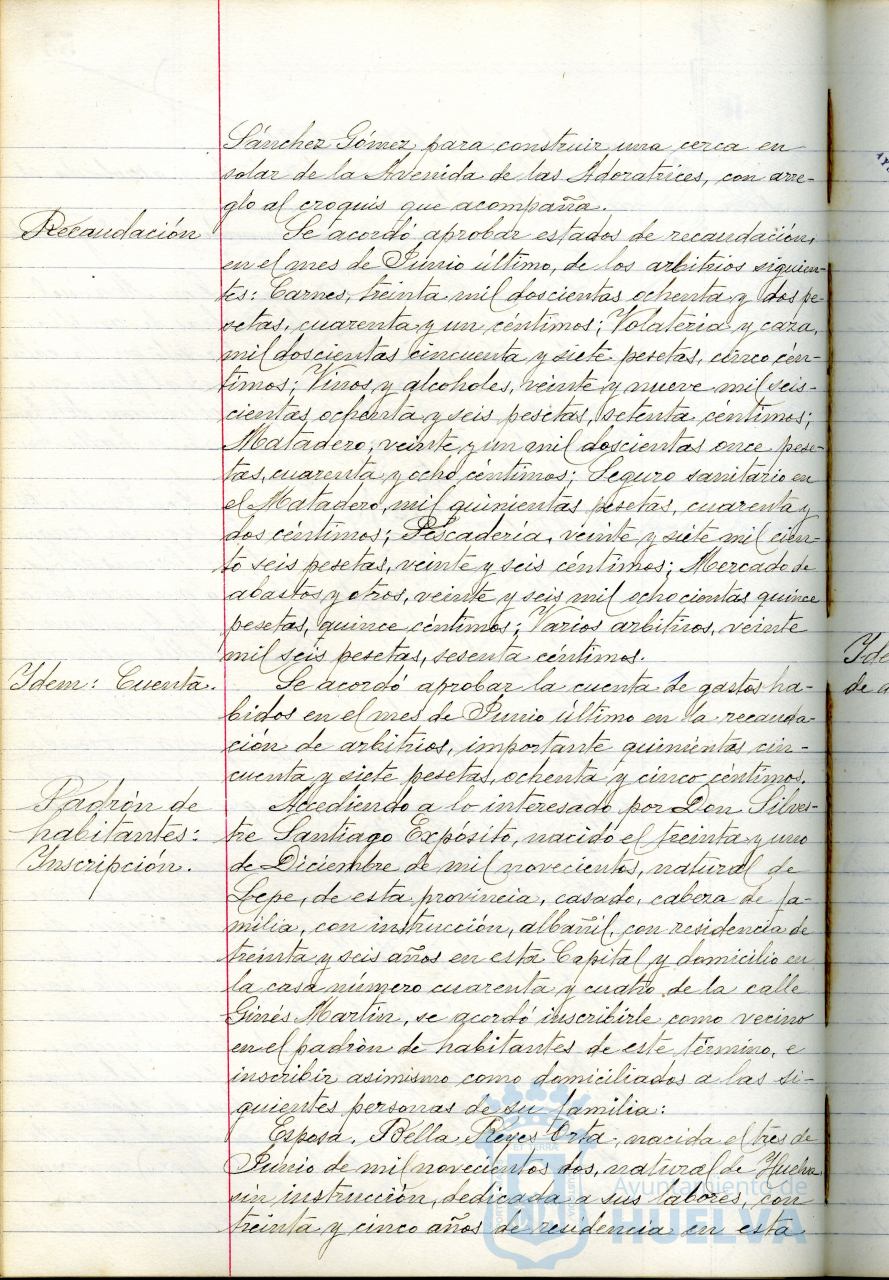 Sánchez Gómez para construir una cerca en
solar de la Avenida de las Adoratrices, con arre-
glo al croquis que acompaña.
Recaudación
Se acordó aprobar estados de recaudación,
en el mes de Junio último, de los arbitrios siguien-
tes: Carnes, treinta mil doscientas ochenta y dos pe-
setas, cuarenta y un céntimos; Volatería y caza,
mil doscientas cincuenta y siete pesetas, cinco cén-
timos; Vinos y alcoholes, veinte y nueve mil seis-
cientas ochenta y seis pesetas, setenta céntimos;
Matadero, veinte y un mil doscientas once pese-
tas, cuarenta y ocho céntimos; Seguro sanitario en
el Matadero, mil quinientas pesetas, cuarenta y
dos céntimos; Pescadería, veinte y siete mil cien-
to seis pesetas, veinte y seis céntimos; Mercado de
abastos y otros, veinte y seis mil ochocientas quince
pesetas, quince céntimos; Varios arbitrios, veinte
mil seis pesetas, sesenta céntimos.
Ydem: Cuenta.
Se acordó aprobar la cuenta de gastos ha-
bidos en el mes de Junio último en la recauda-
ción de arbitrios, importante quinientas cin-
cuenta y siete pesetas, ochenta y cinco céntimos.
Padrón de
habitantes:
Ynscripción.
Accediendo a lo interesado por Don Silves-
tre Santiago Expósito, nacido el treinta y uno
de Diciembre de mil novecientos, natural de
Lepe, de esta provincia, casado, cabeza de fa-
milia, con instrucción, albañil, con residencia de
treinta y seis años en esta Capital y domicilio en
la casa número cuarenta y cuatro de la calle
Ginés Martín, se acordó inscribirle como vecino
en el padrón de habitantes de este término, e
inscribir asimismo como domiciliados a las si-
guientes personas de su familia:
Esposa, Bella Reyes Orta, nacida el tres de
Junio de mil novecientos dos, natural de Huelva,
sin instrucción, dedicada a sus labores, con
treinta y cinco años de residencia en esta
Yde
de a
Ayuntamiento de
HUELVA